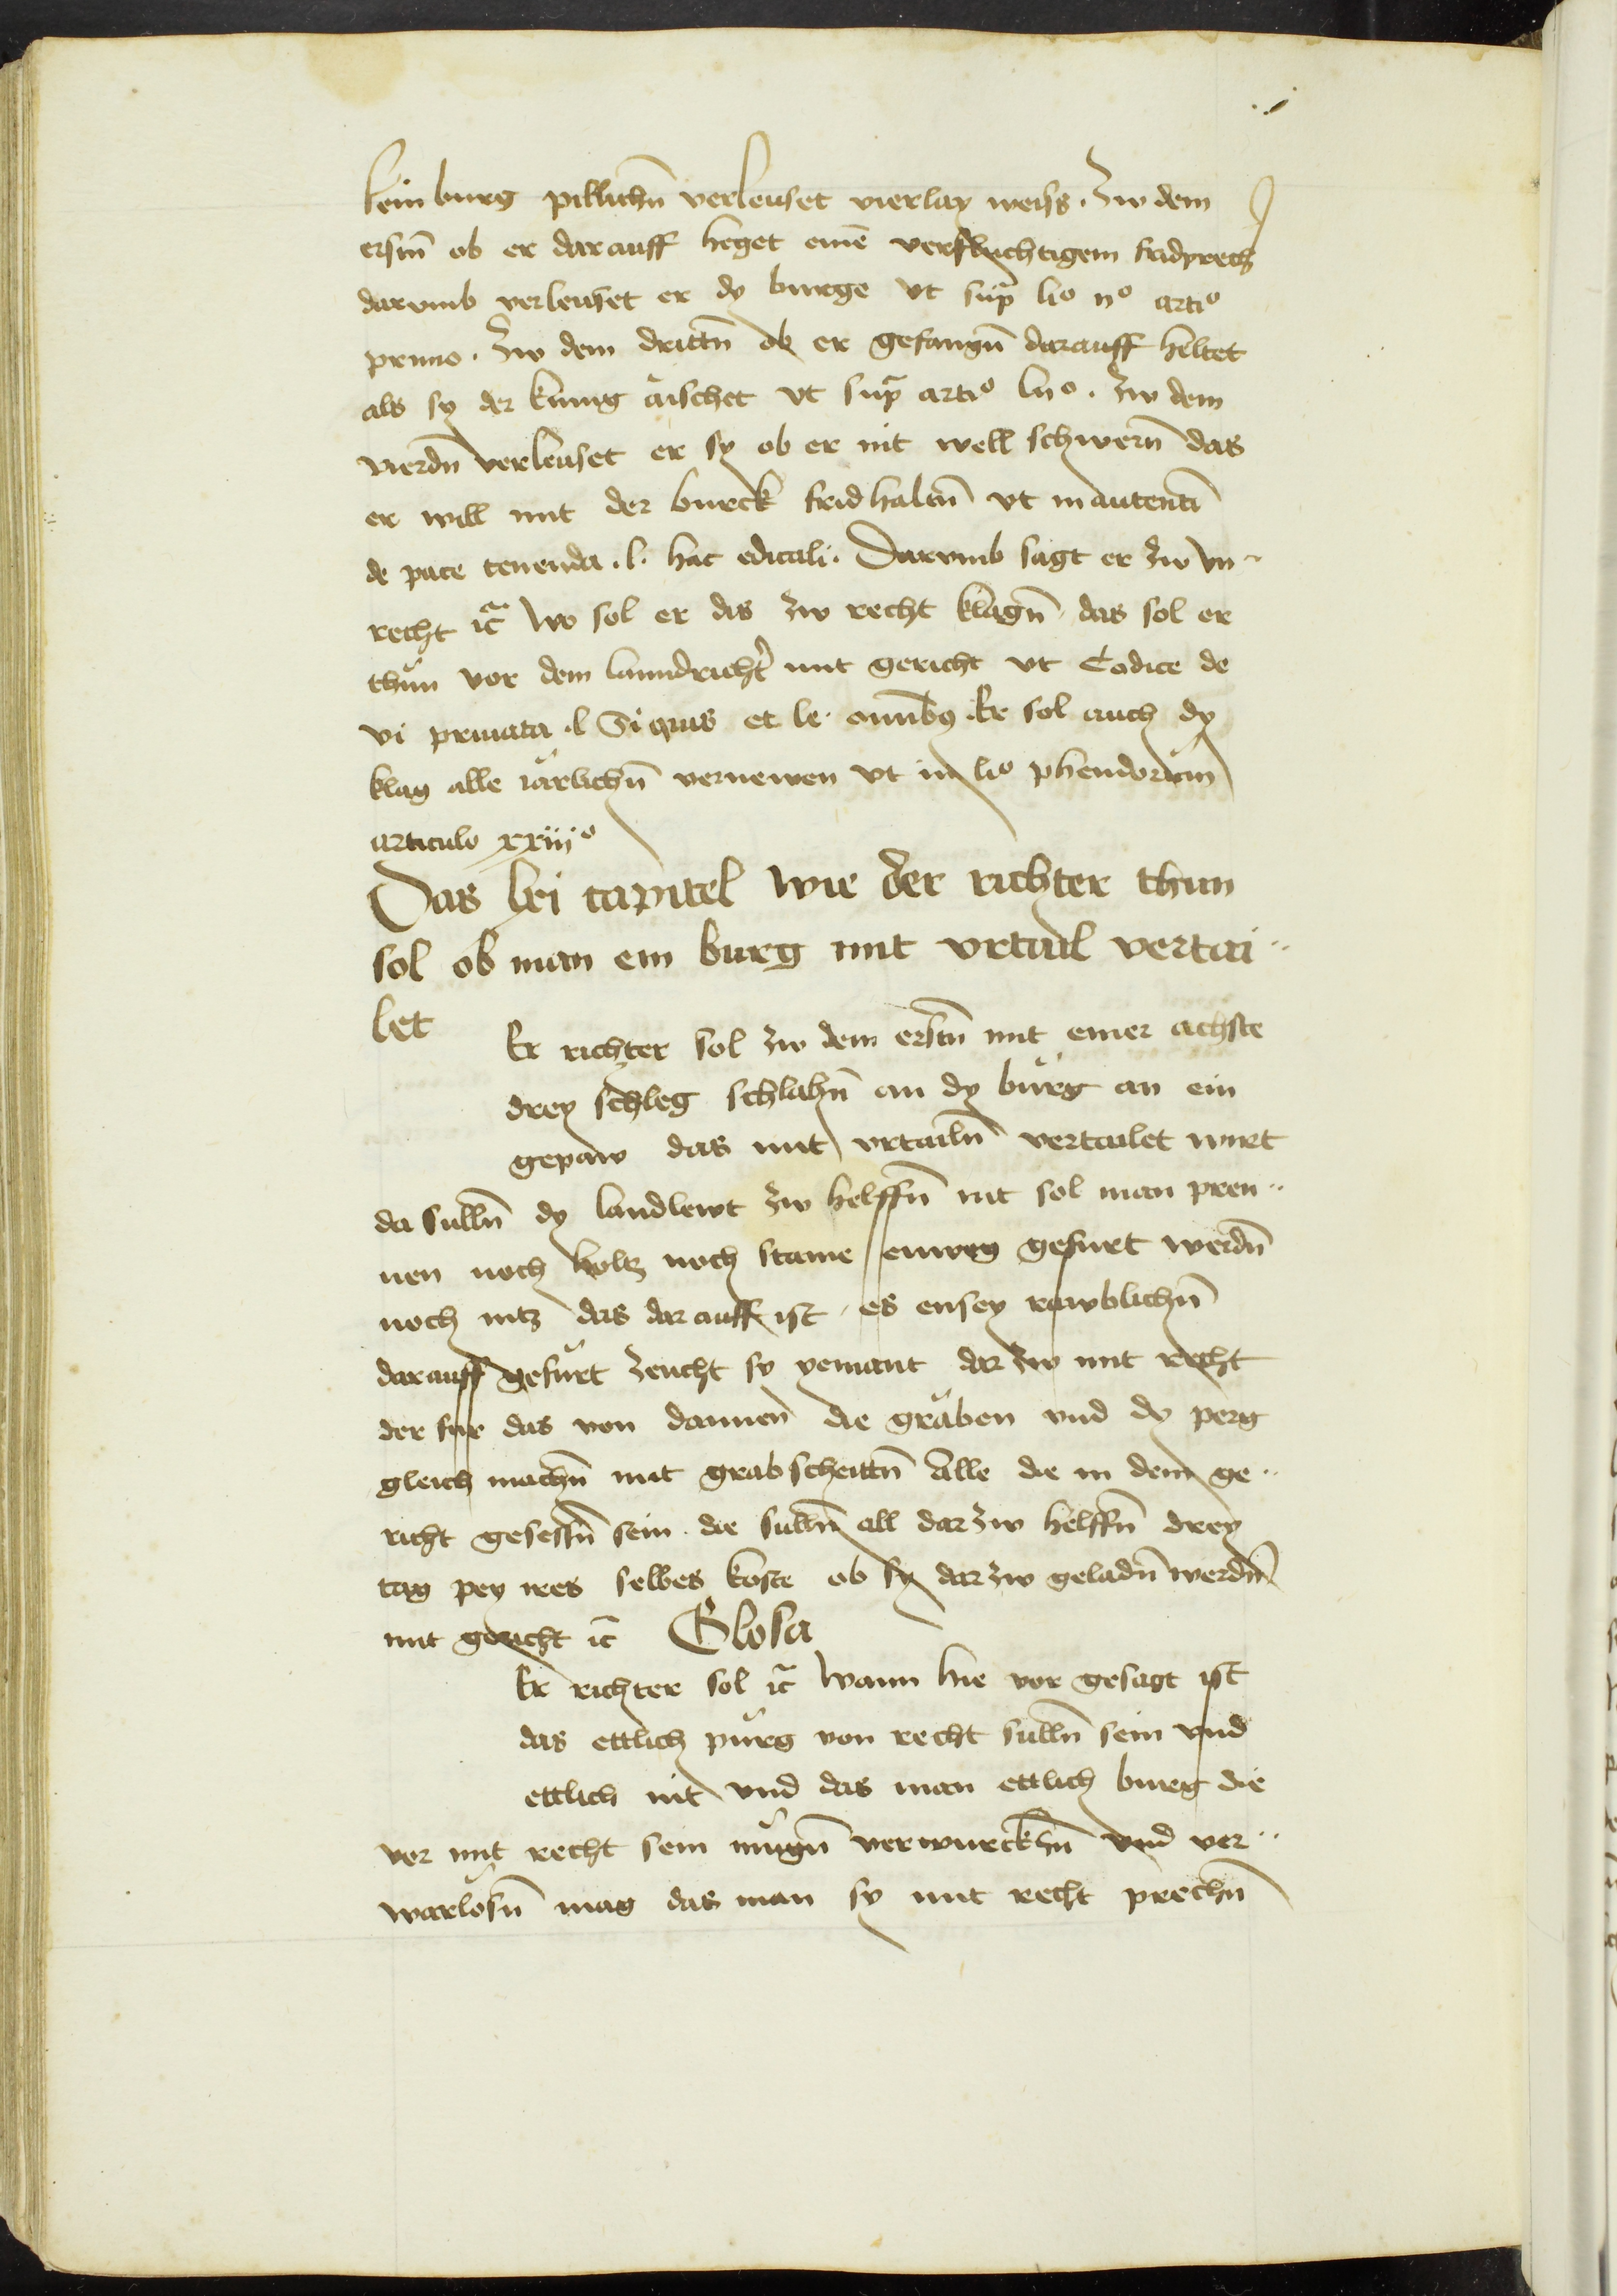 sein burg pillichn̄ verleuset vierlay weiss. Zw dem
erstn̄ ob er darauff heget einē verfluchtigem fridprech
darvmb verleuset er dy burge vt sup̄ lio iio artio
primo. Zw dem drittn̄ ob er gefangn̄ darauff heltet
als sy der kunig aischet vt sup̄ artio lxio. Zw dem
vierdn̄ verleuset er sy ob er nit well schwern̄ das
er will mit der burck frid haltn̄ vt in autenti
de pace tenenda .l. hac edicali. Darvmb sagt er zw vn
recht ic̄ Wo sol er dis zw recht klagn̄ das sol er
thun vor dem lanndricht̓ mit gericht vt Codice de
vi priuata .l Si quis et le. omnibꝰ. Er sol auch dy
klag alle iärlichn̄ vernewen vt in lio pheudorum
articulo xxiiio
Das lxi capitel wie der richter thun
sol ob man ein burg mit vrtail vertai
let
Er richter sol zw dem erstn̄ mit einer achste
drey schleg schlahn̄ an dy burg an ein
gepaw das mit vrtailn̄ vertailet wirt
da sulln̄ dy landlewt zw helffn̄ nit sol man pren
nen noch holtz noch staine enweg gefurt werdn̄
noch nitz das darauff ist es ensey rawblichn̄
darauff gefurt zeucht sy yemant dar zw mit recht
der fur das von dannen die gräben vnd dy perg
gleich machn̄ mit grabscheittn̄ Alle die in dem ge
richt gesessn̄ sein die sulln̄ all darzw helffn̄ drey
tag pey ires selbes koste ob sy darzw geladn̄ werdn̄
mit gericht ic̄ Glosa
Er richter sol ic̄ Wann hie vor gesagt ist
das ettlich purg von recht sulln̄ sein vnd
ettlich nit vnd das man ettlich burg die
vor mit recht sein mugn̄ verwurckhn̄ vnd ver
warlosn̄ mag das man sy mit recht prechn̄